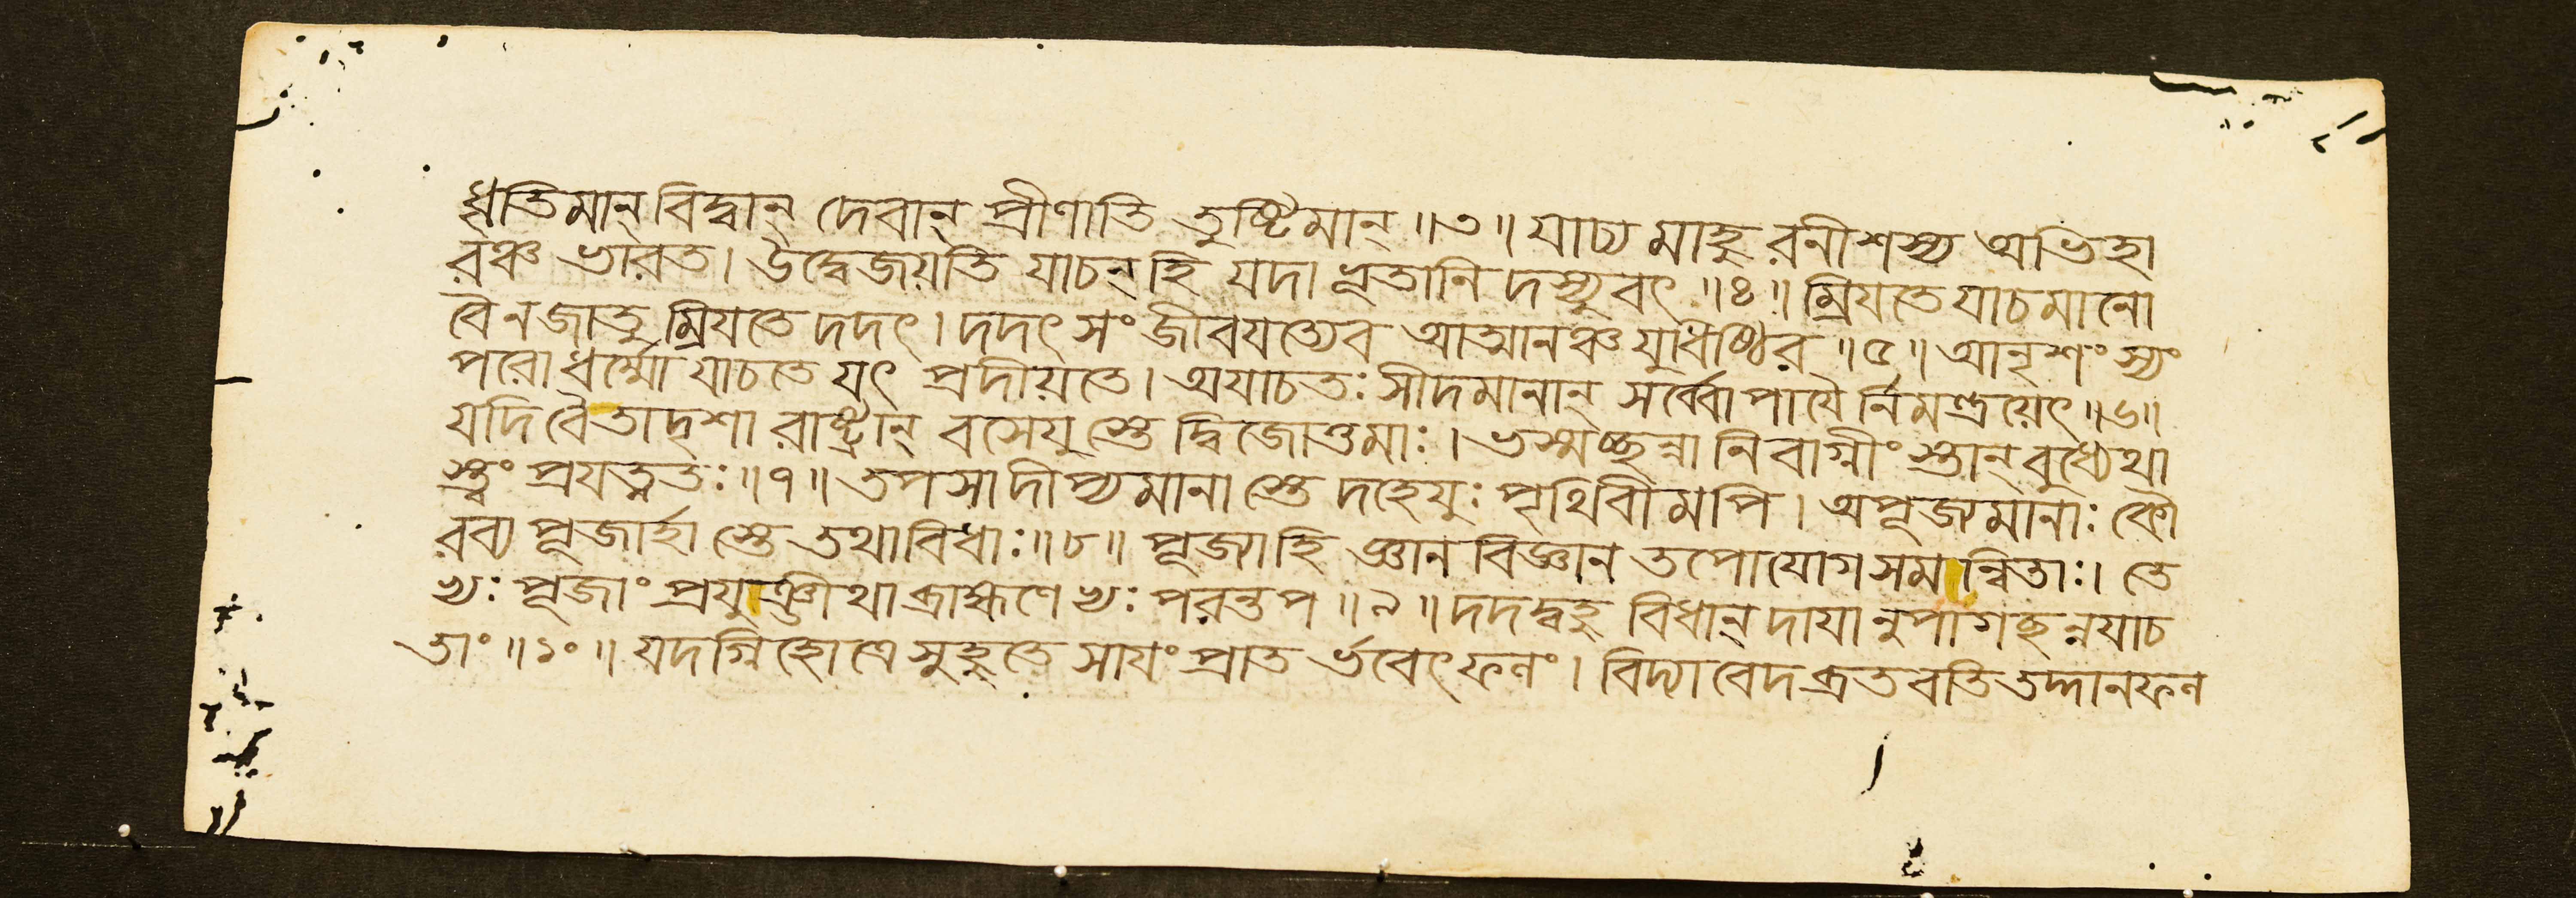 ধৃতিমান্ বিদ্বান্ দেবান্ প্রীণাতি তুষ্টিমান্ ॥৩॥ যাচ্য মাহু রনীশস্য অভিহা
রঞ্চ ভারত। উদ্বেজয়তি যাচন্ হি যদা ভূতানি দস্যুবৎ ॥৪॥ ম্রিযতে যাচমানো
বৈ ন জাতু ম্রিযতে দদৎ। দদৎ সংজীবযত্যেব আত্মানঞ্চ যুধিষ্ঠির ॥৫॥ আনৃশংস্যং
পরো ধর্ম্মো যাচতে যৎ প্রদীয়তে। অযাচতঃ সীদমানান্ সর্ব্বোপাযৈ র্নিমন্ত্রয়েৎ ॥৬॥
যদি বৈ তাদৃশা রাষ্ট্রান্ বসেযু স্তে দ্বিজোত্তমাঃ। ভস্মচ্ছন্না নিবাগ্নীং স্তান্ বুধ্যেথা
স্ত্বং প্রযত্নতঃ ॥৭॥ তপসা দীপ্যমানা স্তে দহেযুঃ পৃথিবীমপি। অপূজ্যমানাঃ কৌ
রব্য পূজার্হা স্তে তথাবিধাঃ ॥৮॥ পূজ্যা হি জ্ঞান বিজ্ঞান তপোযোগসমান্বিতাঃ। তে
ভ্যঃ পূজাং প্রযুঞ্জীথা ব্রাহ্মণেভ্যঃ পরন্তপ ॥৯॥ দদদ্বহু বিধান্ দাযানুপাগচ্ছন্নযাচ
তাং ॥১০॥ যদগ্নিহোত্রে সুহুতে সাযং প্রাত র্ভবেৎ ফলং। বিদ্যাবেদব্রতবতি তদ্দানফল